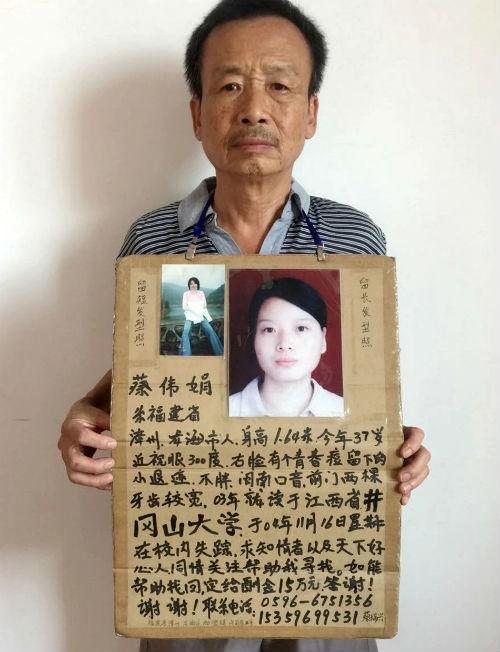 留短发型照
留长发型照
蔡伟娟
福建省
漳州、龙海市人、身高1.64米今年37岁
近视眼300度、右脸有个青春痘留下的
小退迹、不胖、闽南口音、前门两棵
牙齿较宽、03年就读于江西省井
冈山大学、于04年11月16日星期
在校内失踪、求知情者以及天下好
心人同情关注帮助我寻找。如能
帮助找回定给酬金15万元答谢!
谢谢!联系电话:0596-6751356
15359699531